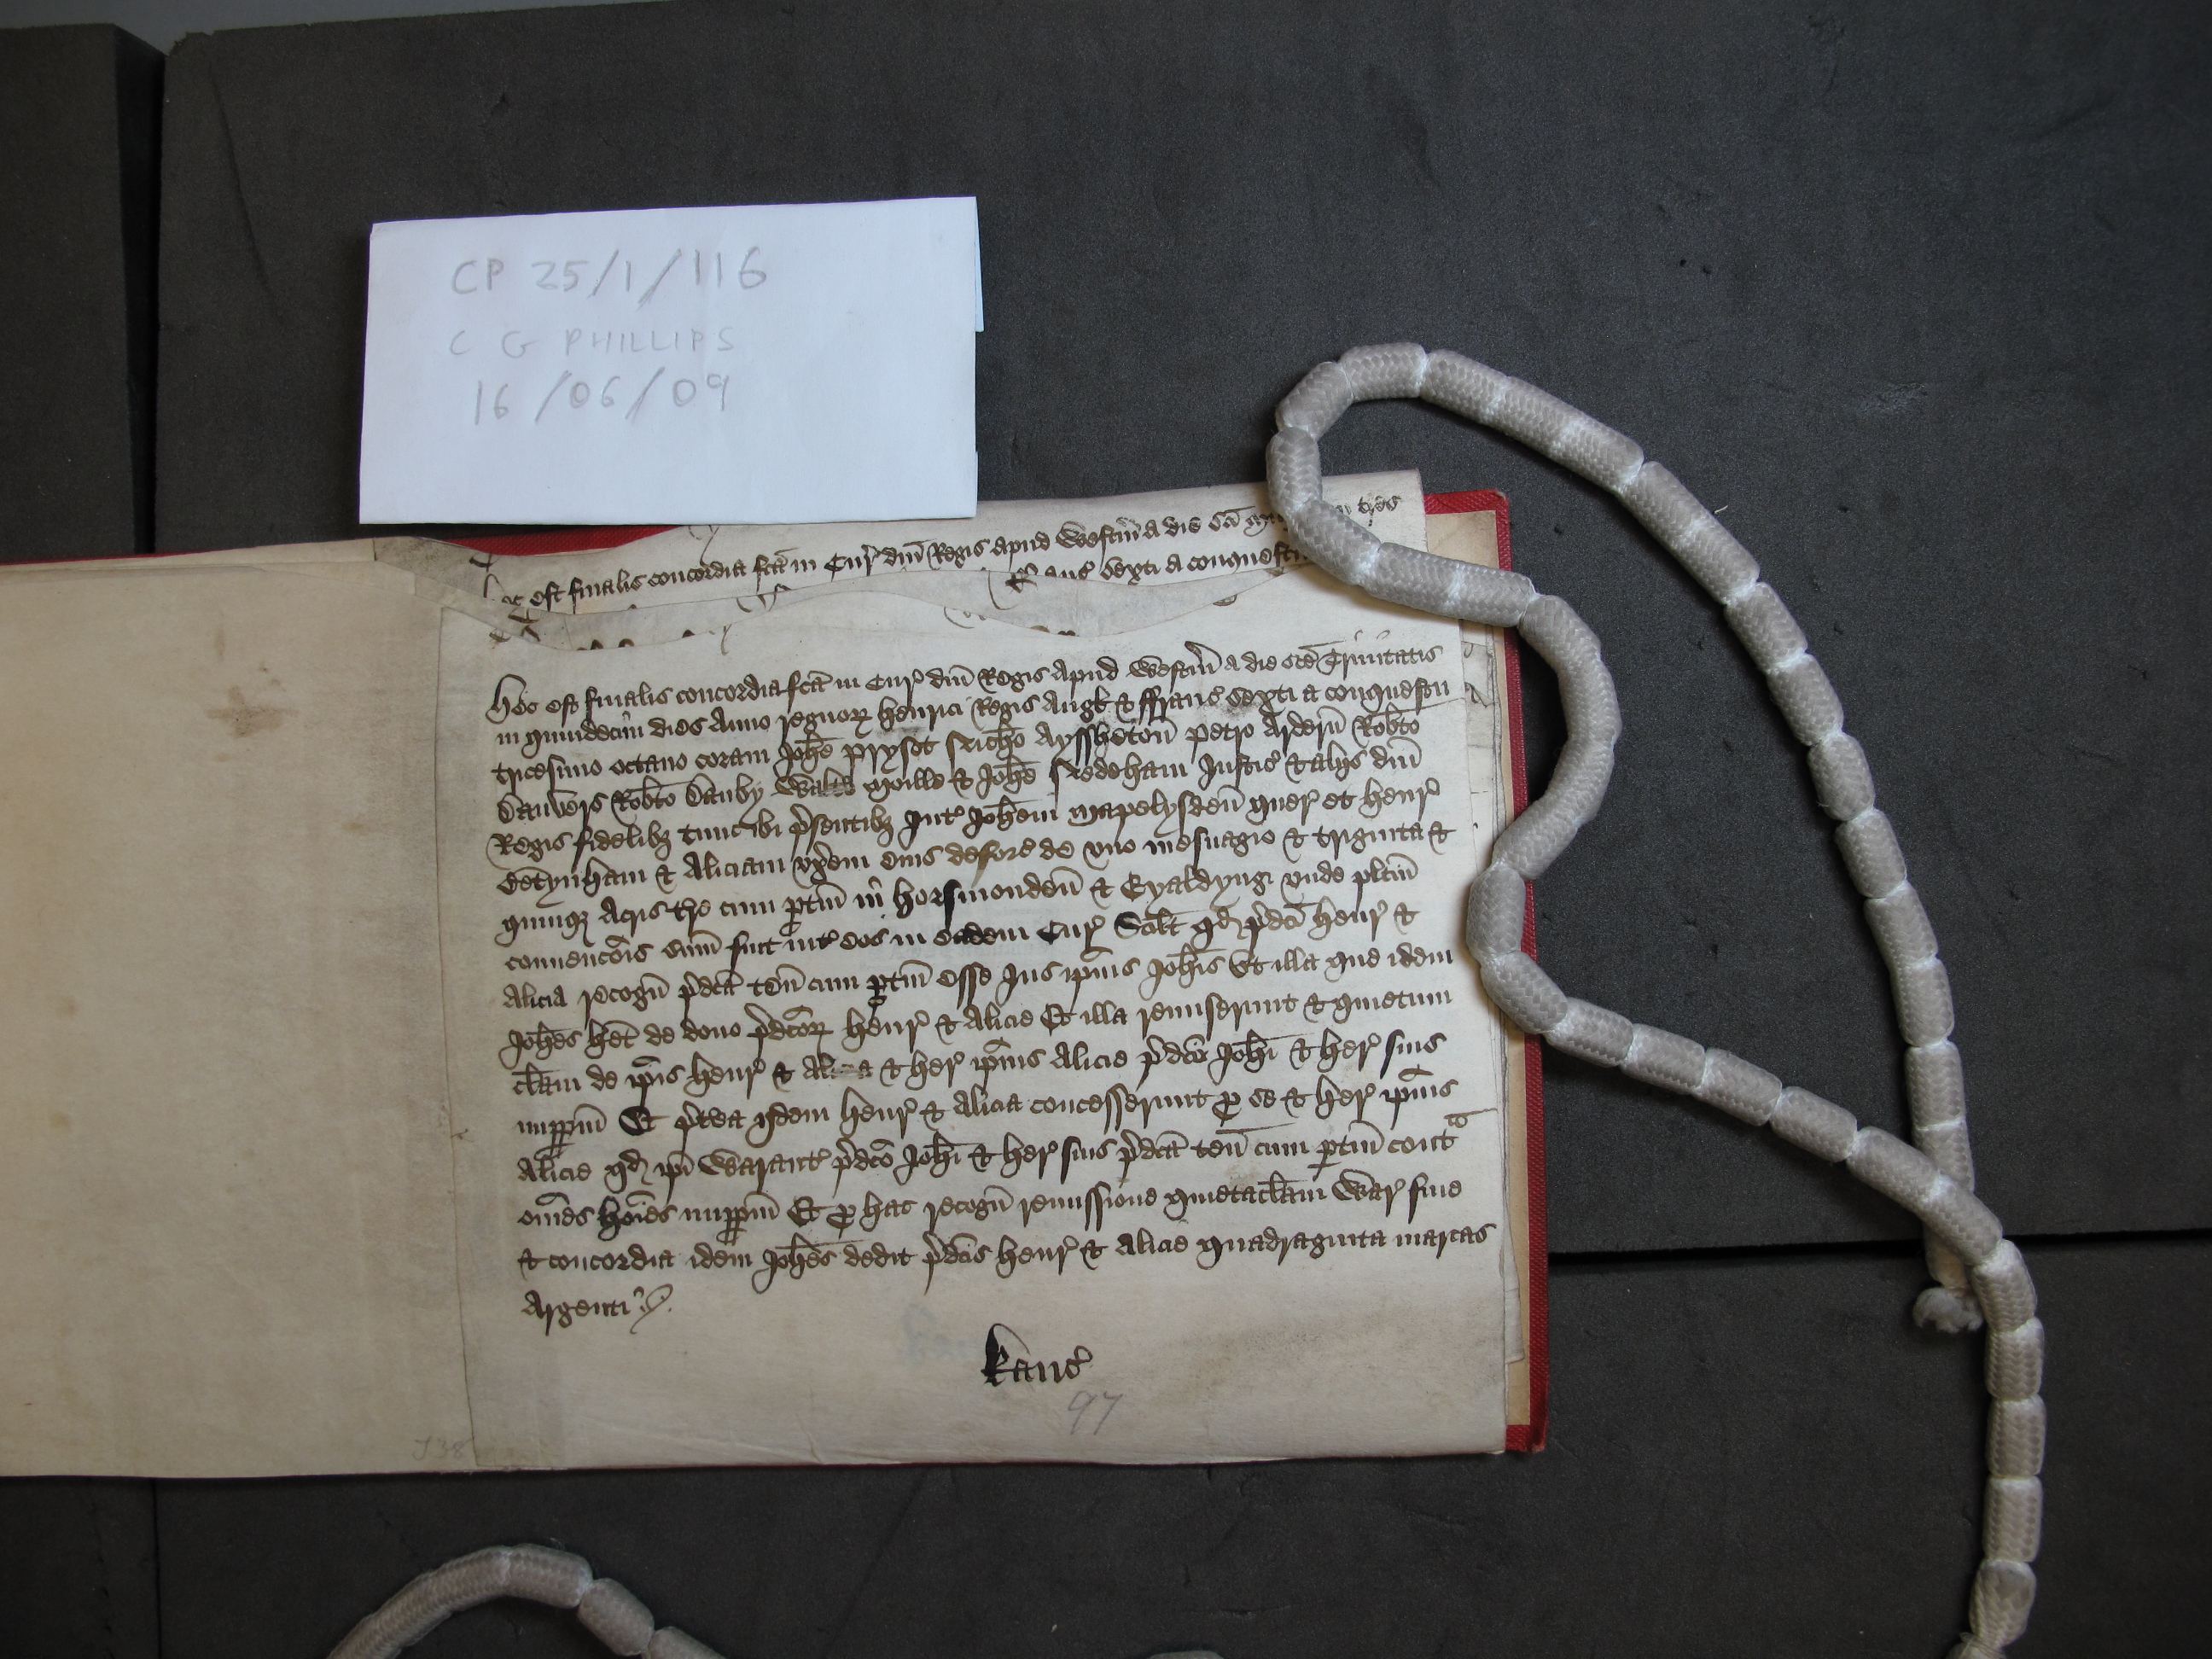 CP 25/1/116
C G PHILLIPS
16/06/09
est finalis concordia fcā in Cur' dnī Regis apud Westm̄ a die scī
Franc' sexti a conquestu
Hec est finalis concordia fcā in Cur' dnī Regis apud Westm̄ a die scē Trinitatis
in quindecim dies Anno regnoꝝ Henrici Regis Angl' & ffranc' sexti a conquestu
tricesimo octavo coram Joħe Prysot Nicħo Ayssheton̄ Petro Ardern̄ Robt̄o
Danvers Robt̄o Danby Walt̄o Moille & Joħe Nedeham Justic' & aliis dnī
Regis fidelibꝫ tunc ibi p̄sentibꝫ Int' Joħem Mapelysden̄ quer' et Henr'
Betynham & Aliciam vx̄em eius deforc' de vno mesuagio & triginta &
quinqꝫ acris tr̄e cum ptin̄ in Horsmonden̄ & Eyaldyng vnde pltm̄
convenc̄ois sum̄ fuit int' eos in eadem Cur' Scilt̄ qd̄ p̄dcī Henr' &
Alicia recogn̄ p̄dcā ten̄ cum ptin̄ esse Jus ip̄ius Joħis vt illa que idem
Joħes het̄ de dono p̄dcōꝝ Henr' & Alicie Et illa remiserunt & quietum
clam̄ de ip̄is Henr' & Alicia & her' ip̄ius Alicie p̄dcō Joħi & her' suis
imppm̄ Et p̄terea ijdem Henr' & Alicia concesserunt ꝑ se & her' ip̄ius
Alicie qd̄ ip̄i Warant' p̄dcō Joħi & her' suis p̄dcā ten̄ cum ptin̄ cont^a
om̄es hoīes imppm̄ Et ꝑ hac recogn̄ remissione quietaclam̄ War' fine
& concordia idem Joħes dedit p̄dcīs Henr' & Alicie quadraginta marcas
Argenti
Kanc'
97